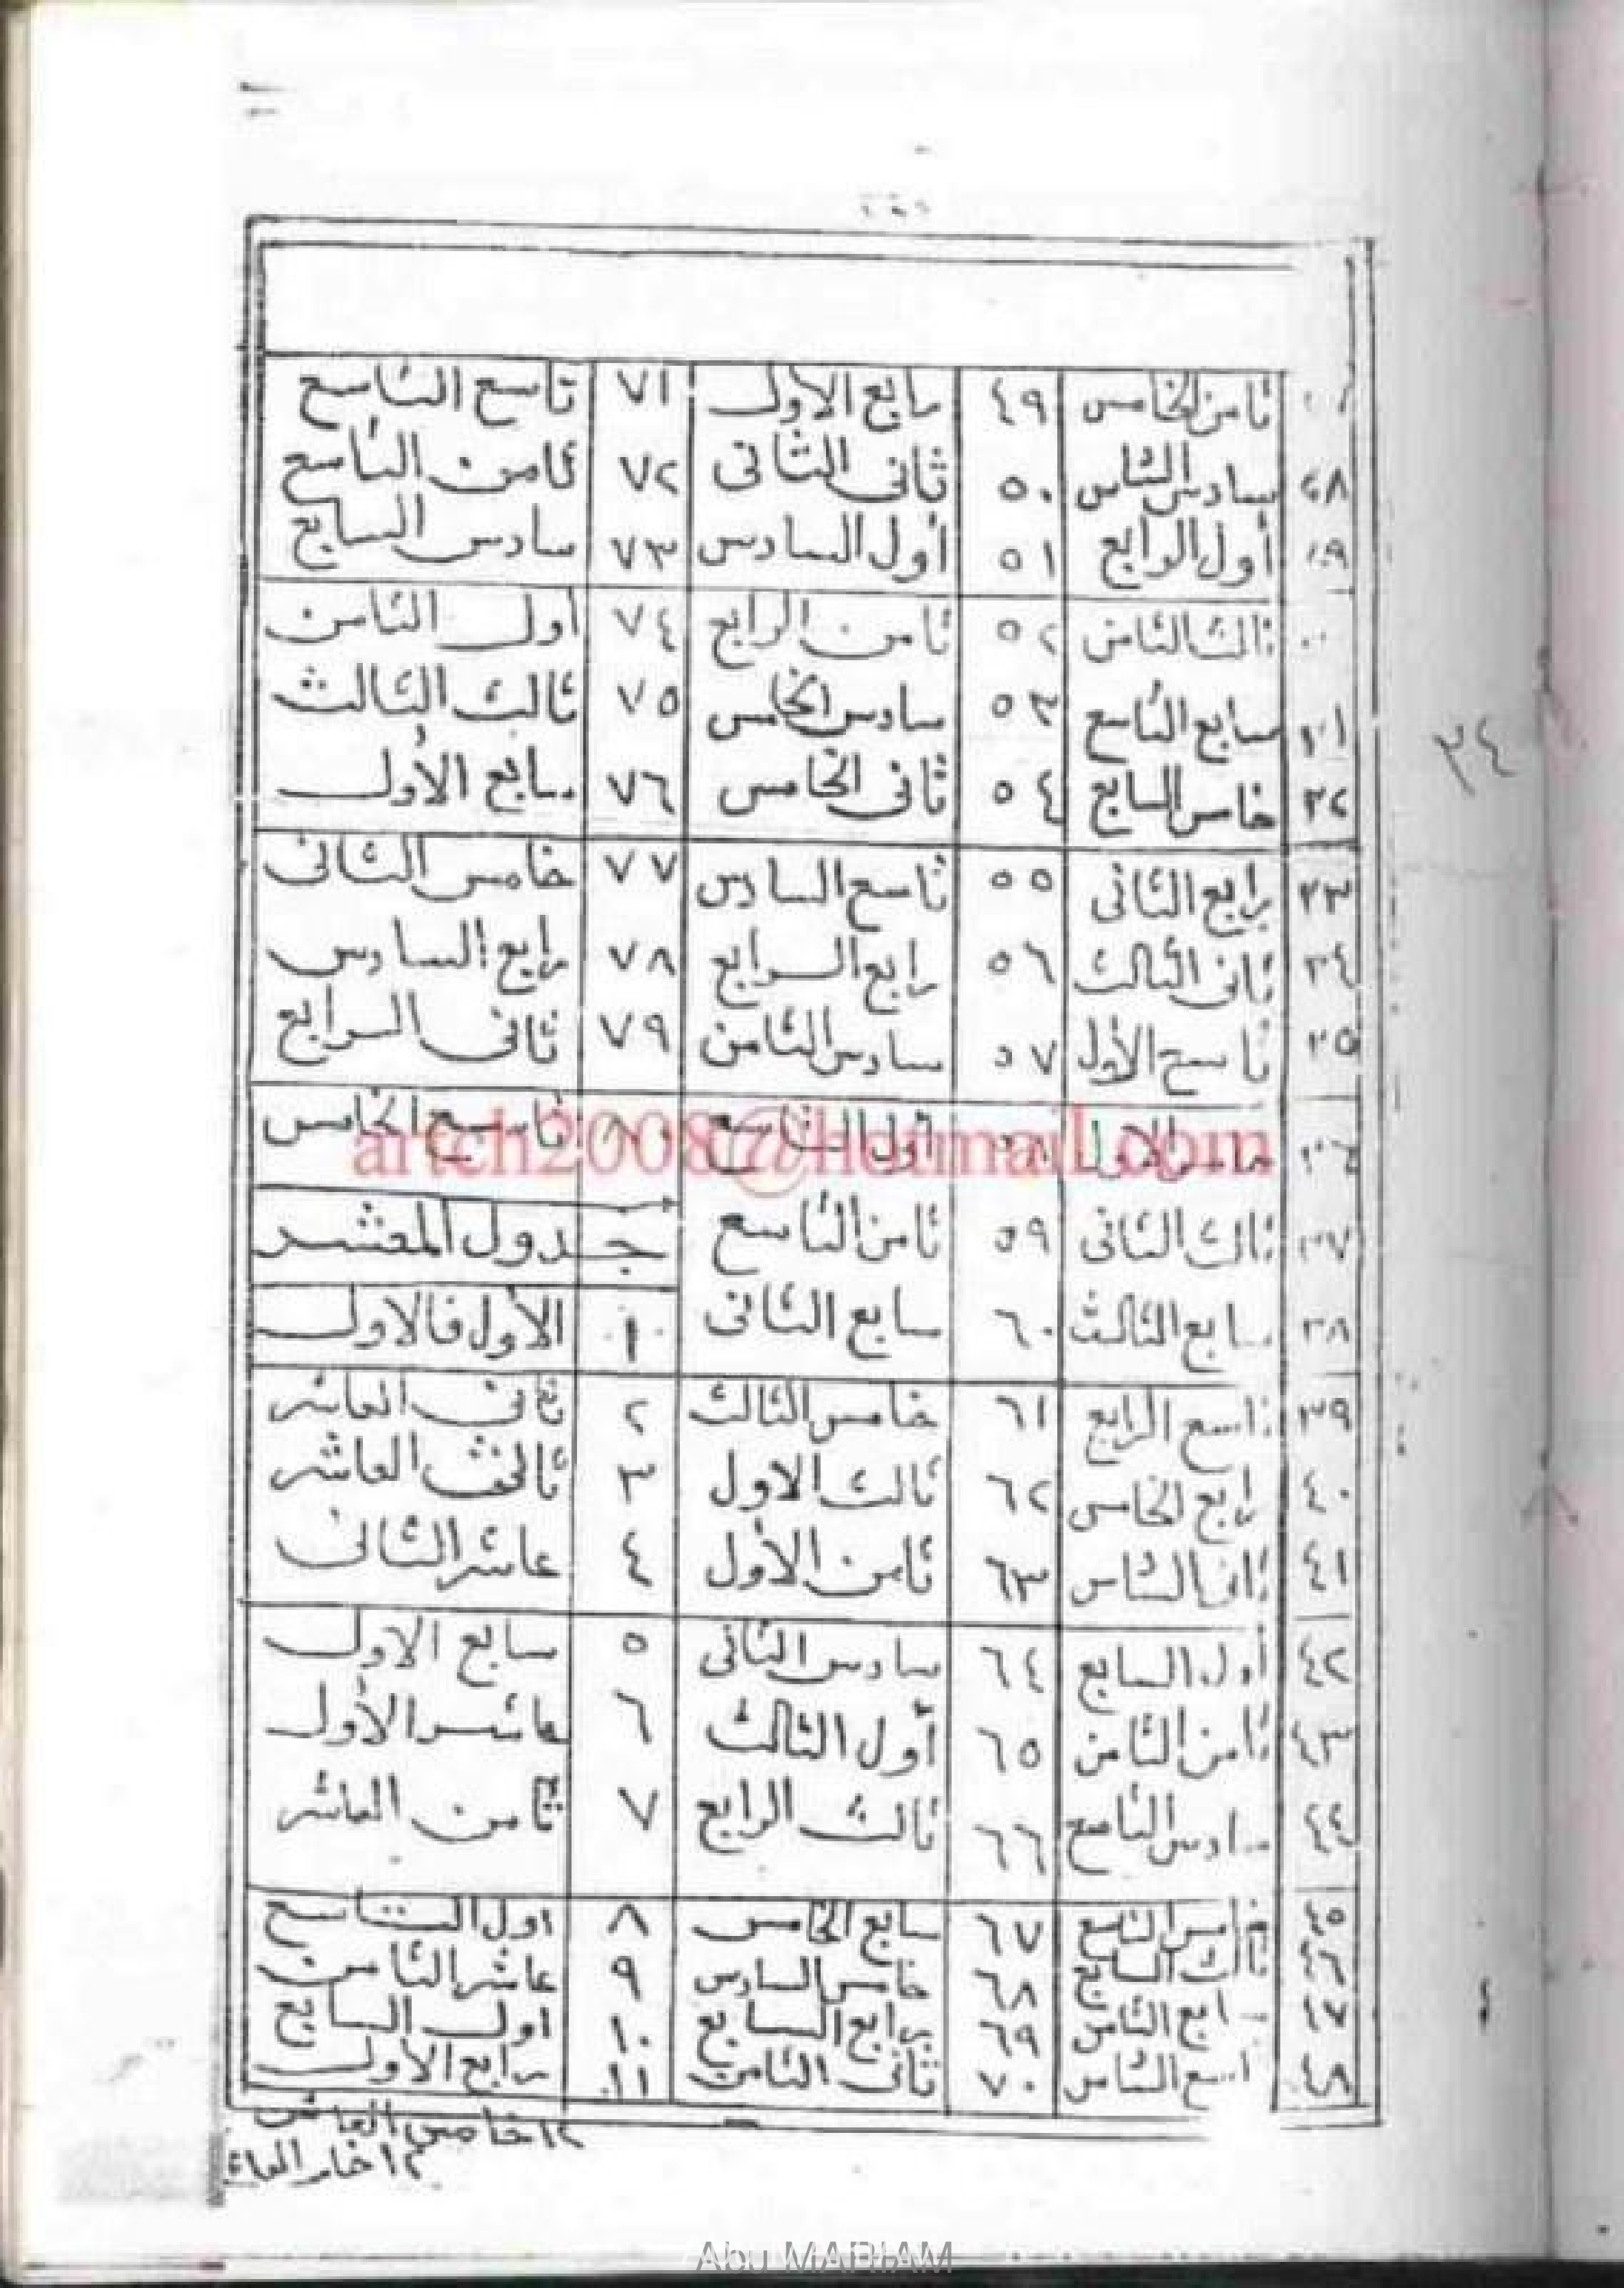 ثامن الخامس ٤٩ رابع الاول ٧١ تاسع التاسع
سادس ٥٠ ثانى الثانى ٧٢ ثامن التاسع
أول الرابع ٥١ أول السادس ٧٣ سادس السابع
ثالث الثامن ٥٢ ثامن الرابع ٧٤ أول الثامن
٣١ سابع التاسع ٥٣ سادس الخامس ٧٥ ثالث الثالث
٣٢ خامس السابع ٥٤ ثانى الخامس ٧٦ سابع الأول
٣٤
٣٣ رابع الثانى ٥٥ تاسع السادس ٧٧ خامس الثانى
٣٤ ثانى الثالث ٥٦ رابع الرابع ٧٨ رابع السادس
٣٥ تاسع الأول ٥٧ سادس الثامن ٧٩ ثانى الرابع
٣٦ الاول أول التاسع تاسع الخامس
artch2008@hotmail.com
٣٧ ثالث الثانى ٥٩ ثامن التاسع جدول المعشر
٣٨ سابع الثالث ٦٠ سابع الثانى ١ الأول فالاول
٣٩ تاسع الرابع ٦١ خامس الثالث ٢ ثانى العاشر
٤٠ رابع الخامس ٦٢ ثالث الاول ٣ ثالث العاشر
٤١ ثانى ٦٣ ثامن الأول ٤ عاشر الثانى
٤٢ أول السابع ٦٤ سادس الثانى ٥ سابع الاول
٤٣ ثامن الثامن ٦٥ أول الثالث ٦ عاشر الأول
٤٤ سادس التاسع ٦٦ ثالث الرابع ٧ ثامن العاشر
٤٥ خامس التاسع ٦٧ سابع الخامس ٨ اول التاسع
ثالث السابع ٦٨ خامس السادس ٩ عاشر الثامن
رابع ٦٩ رابع السابع ١٠ اول السابع
٤٨ تاسع ٧٠ ثانى الثامن ١١ رابع الاول
١٢ خامس العاشر
Abu MARIAM